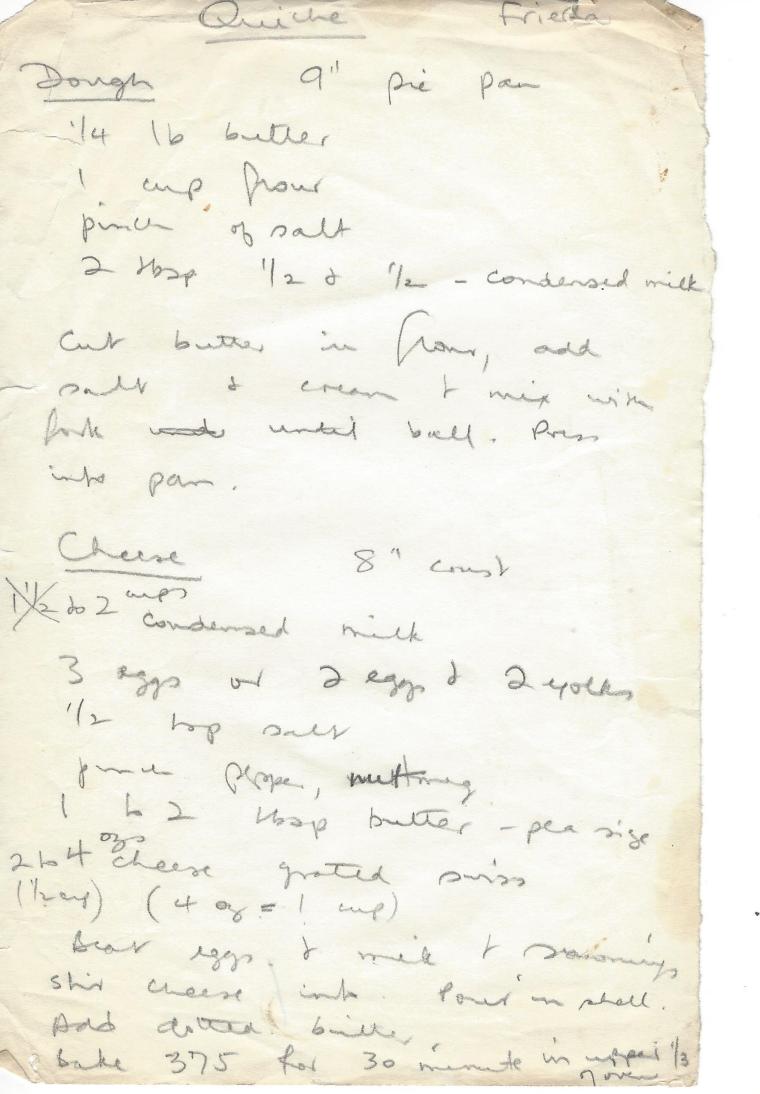 Quiche Frieda
Dough 9" pie pan
1/4 lb butter
1 cup flour
pinch of salt
2 tbsp 1/2 & 1/2 - condensed milk
Cut butter in flour, add
salt & cream & mix with
fork until ball. Press
into pan.
Cheese 8" crust
1 1/2 to 2 cups
condensed milk
3 eggs or 2 eggs & 2 yolks
1/2 tsp salt
pinch pepper, nuttmeg
1 to 2 tbsp butter - pea size
2 to 4 ozs cheese grated swiss
(1/2 cup) (4 oz = 1 cup)
Beat eggs & milk & seasonings
stir cheese into. Pour in shell.
Add dotted butter
bake 375 for 30 minute in upper 1/3
of oven